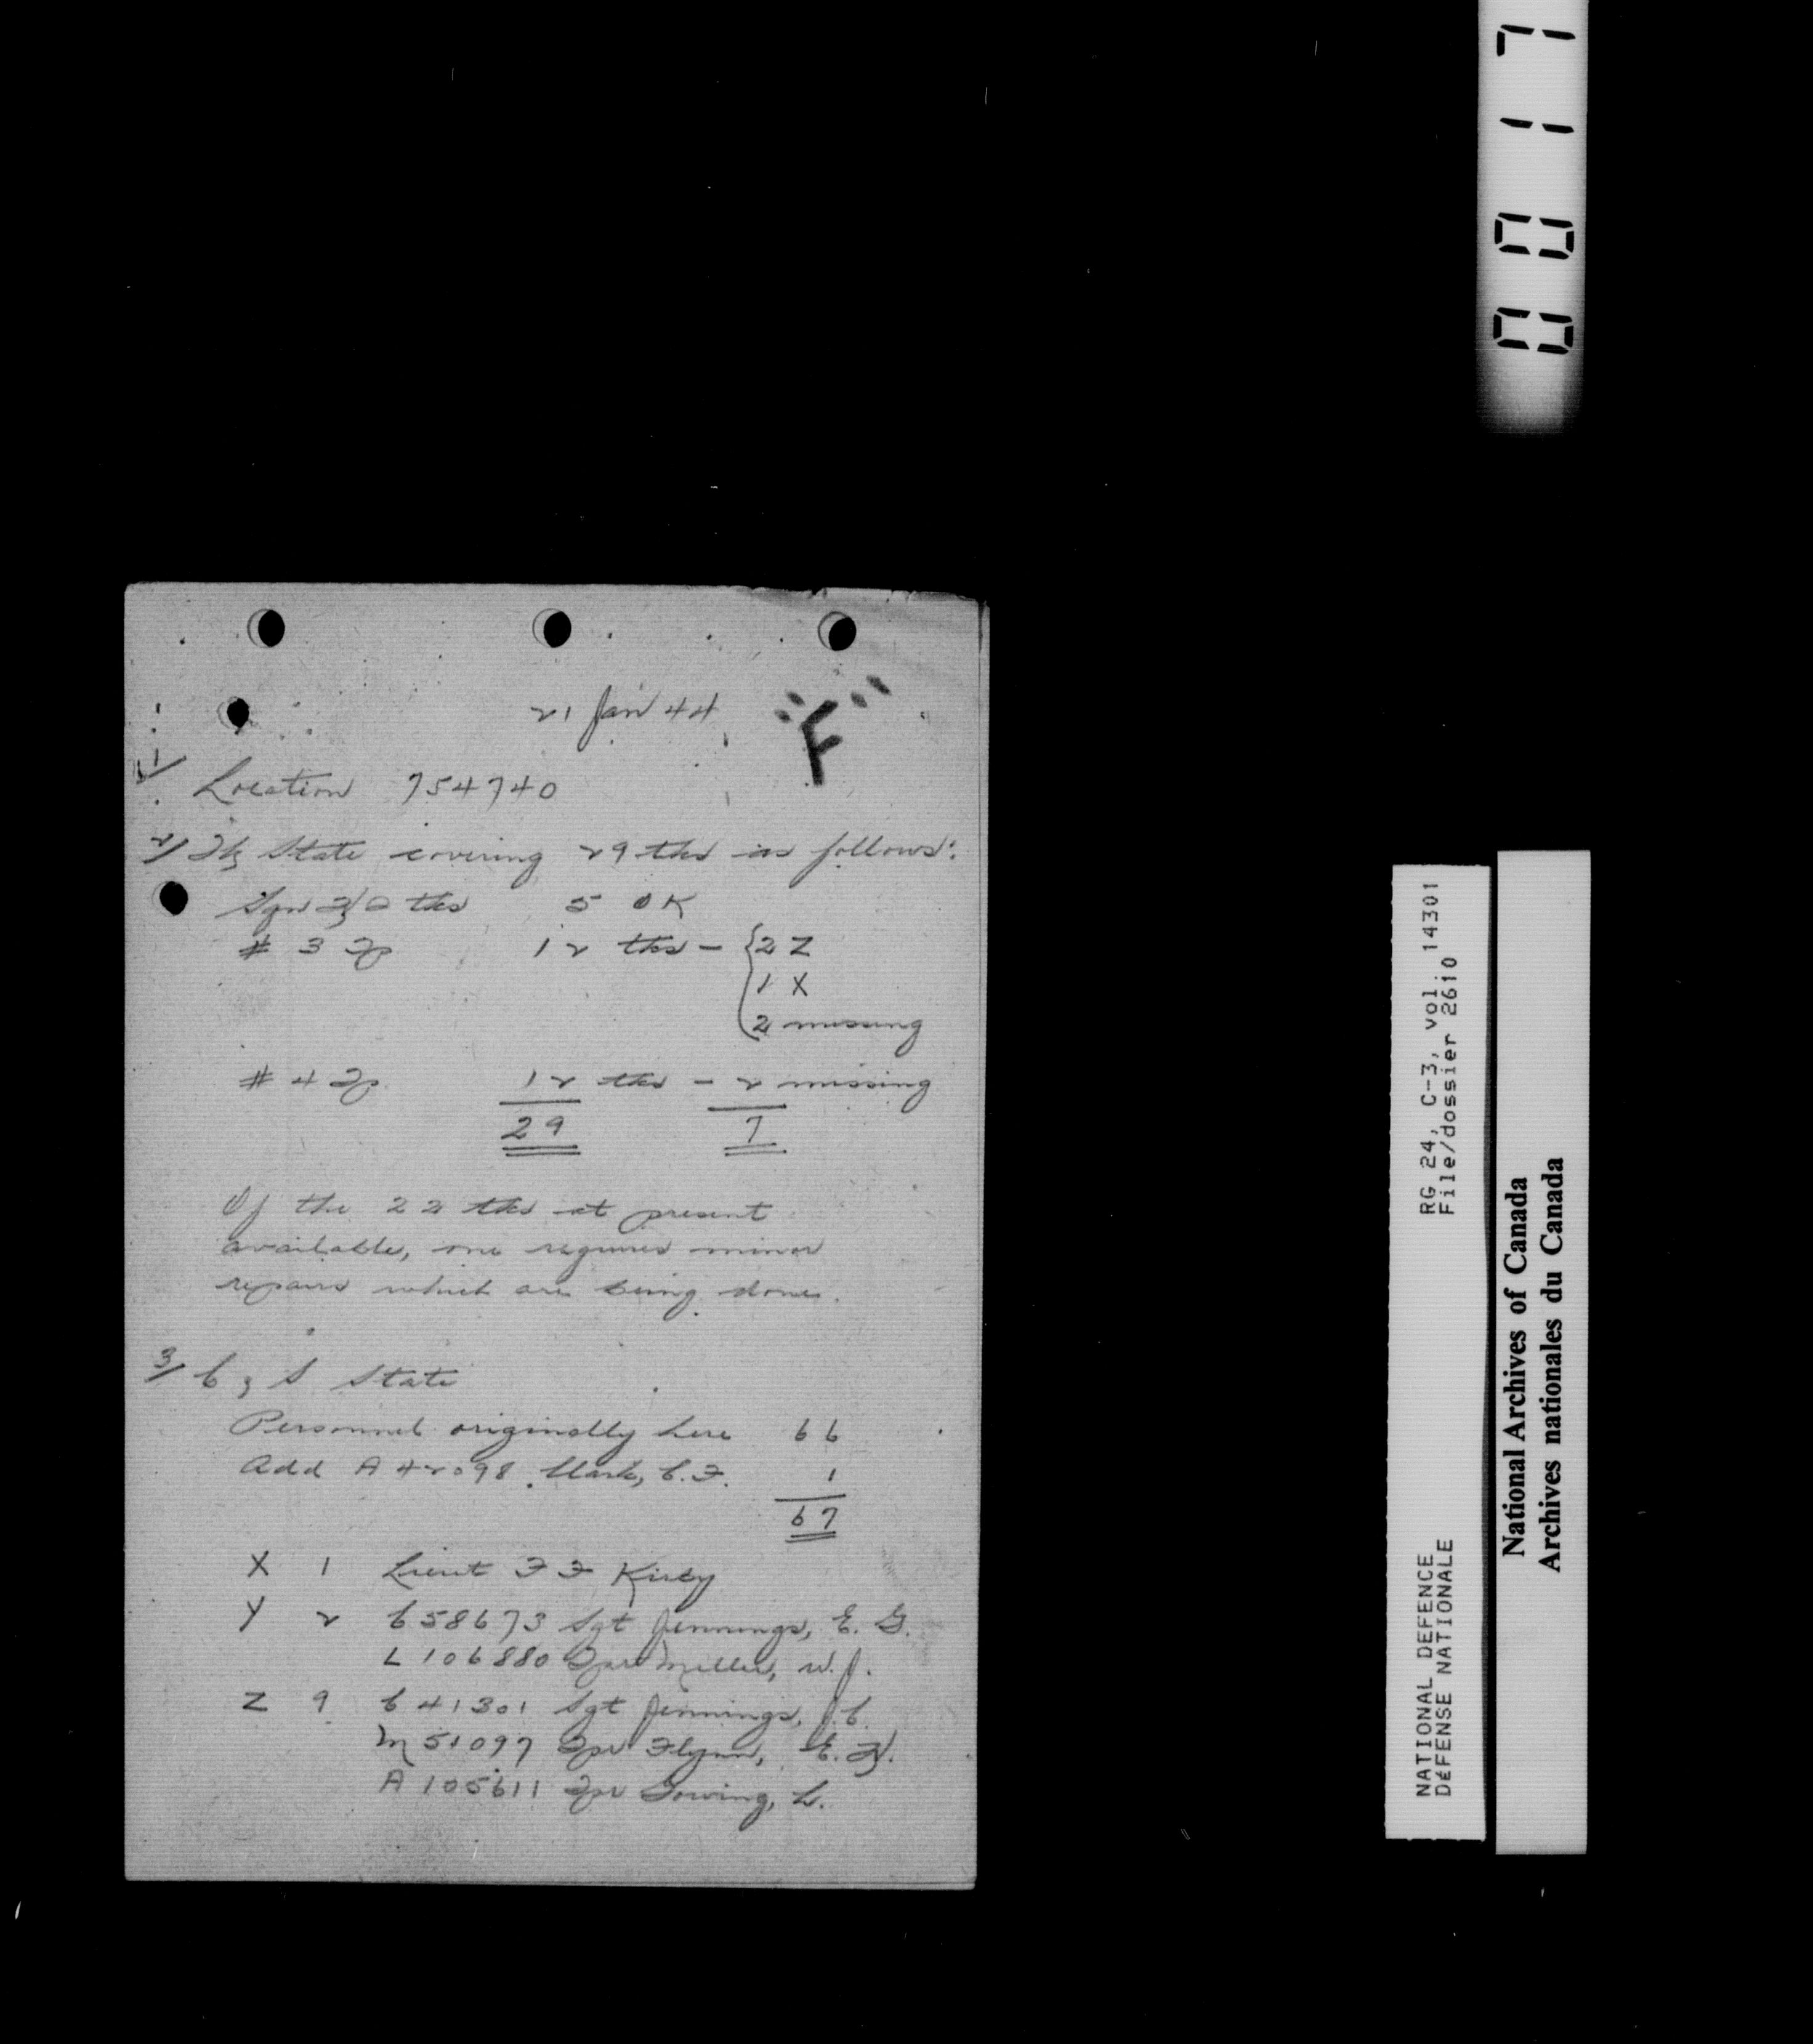 21 Jan 44
"F"
1/ Location 754740
2/ Tk State covering 29 tks is as follows:
Sqn HQ tks 5 OK
# 3 Tp 12 tks - {2 Z
1 X
2 missing
# 4 Tp 12 tks - 2 missing
29 7
Of the 22 tks at present
available, one requires minor
repairs which are being done.
3/ C & S State
Personnel originally here 66
Add A42098 Clark, C.F. 1
67
X 1 Lieut F F Kirby
Y 2 C58673 Sgt Jennings, E. G.
L106880 Tpr Miller, W.J.
Z 9 C41301 Sgt Jennings, J.C.
M51097 Tpr Flynn, E.
A105611 Tpr Gowing, L.
0017
RG 24, C-3, vol. 14301
File/dossier 2610
NATIONAL DEFENCE
DÉFENSE NATIONALE
National Archives of Canada
Archives nationales du Canada